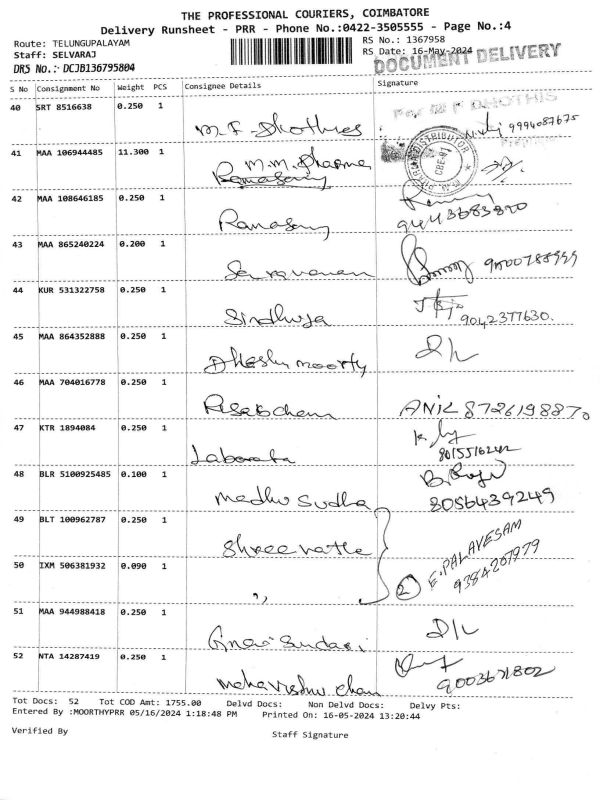 THE PROFESSIONAL COURIERS, COIMBATORE
Delivery Runsheet - PRR - Phone No.:0422-3505555 - Page No.:4
Route: TELUNGUPALAYAM RS No.: 1367958
Staff: SELVARAJ RS Date: 16-May-2024
DRS No.: DCJB136795804 DOCUMENT DELIVERY
S No Consignment No Weight PCS Consignee Details Signature
40 SRT 8516638 0.250 1
For M F DHOTHIS
M.F. Dhothies 9994087675
41 MAA 106944485 11.300 1
M.M. Dharma
Ramasamy
DISTRIBUTOR CBE-
42 MAA 108646185 0.250 1
Ramasamy 9443683890
43 MAA 865240224 0.200 1
Saravanan
44 KUR 531322758 0.250 1
Sindhuja 9042377630.
45 MAA 864352888 0.250 1
moorty D/L
46 MAA 704016778 0.250 1
ANIL 8726198870
47 KTR 1894084 0.250 1
8015516242
48 BLR 5100925485 0.100 1
Madhu Sudha 8056439249
49 BLT 100962787 0.250 1
E. PALAVESAM
50 IXM 506381932 0.090 1
" 2 9384207979
51 MAA 944988418 0.250 1
D/L
52 NTA 14287419 0.250 1
9003671802
Tot Docs: 52 Tot COD Amt: 1755.00 Delvd Docs: Non Delvd Docs: Delvy Pts:
Entered By :MOORTHYPRR 05/16/2024 1:18:48 PM Printed On: 16-05-2024 13:20:44
Verified By Staff Signature